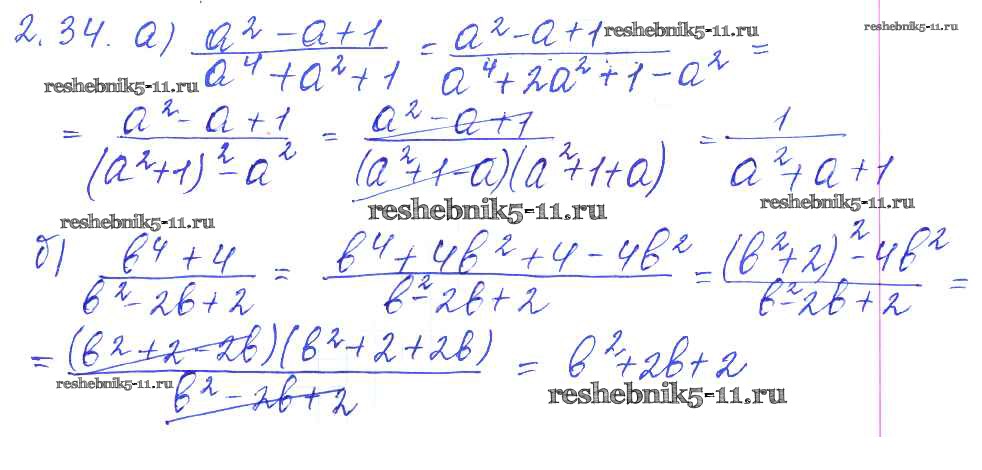 2.34. а) (a² - a + 1)/(a⁴ + a² + 1) = (a² - a + 1)/(a⁴ + 2a² + 1 - a²) =
reshebnik5-11.ru reshebnik5-11.ru reshebnik5-11.ru
= (a² - a + 1)/((a² + 1)² - a²) = (a² - a + 1)/((a² + 1 - a)(a² + 1 + a)) = 1/(a² + a + 1)
reshebnik5-11.ru reshebnik5-11.ru reshebnik5-11.ru
б) (b⁴ + 4)/(b² - 2b + 2) = (b⁴ + 4b² + 4 - 4b²)/(b² - 2b + 2) = ((b² + 2)² - 4b²)/(b² - 2b + 2) =
= ((b² + 2 - 2b)(b² + 2 + 2b))/(b² - 2b + 2) = b² + 2b + 2
reshebnik5-11.ru reshebnik5-11.ru